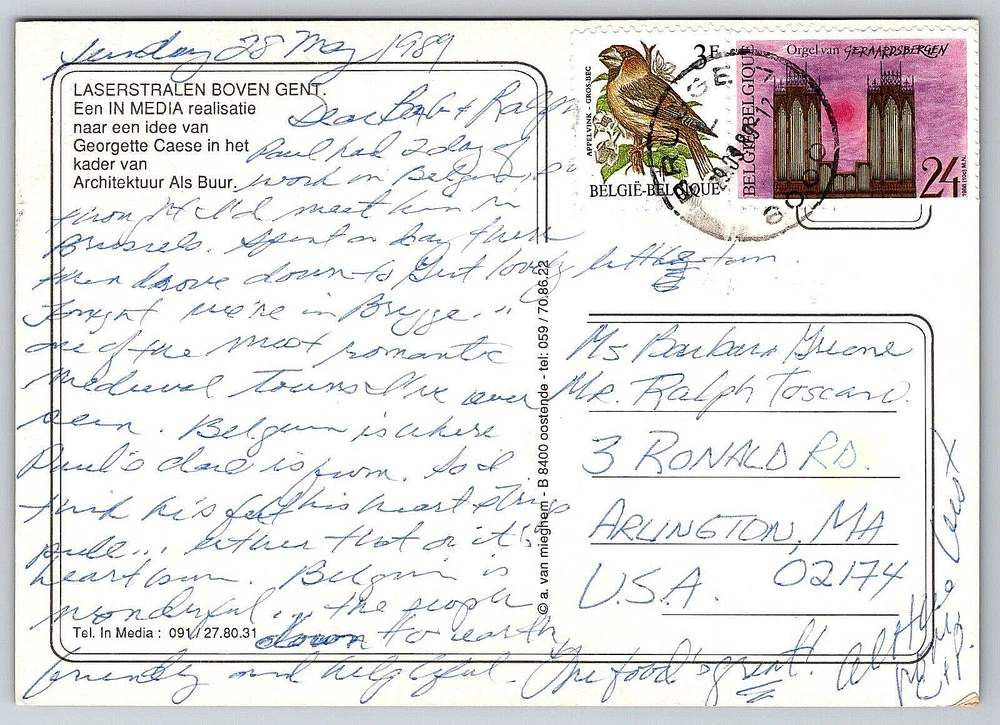 Sunday 28 May 1989
LASERSTRALEN BOVEN GENT.
Een IN MEDIA realisatie
naar een idee van
Georgette Caese in het
kader van
Architektuur Als Buur.
Dear Barb + Ralph
Paul had 2 day of
work in Belgium, so
I'd meet him in
Brussels. Spent a day there
then drove down to Gent lovely little town.
Tonight we're in Brugge...
one of the most romantic
Medieval Towns I've ever
seen. Belgium is where
Paul's dad is from. So I
think he's felt his heart strings
pull... either that or it's
heartburn. Belgium is
wonderful... the people
down to earth,
friendly and helpful. The food's great!
Tel. In Media : 091 / 27.80.31
© a. van mieghem - B 8400 oostende - tel: 059 / 70.86.22
APPELVINK - GROS.BEC
3F
BELGIË-BELGIQUE
Orgel van GERAARDSBERGEN
BELGIË-BELGIQUE
24
BRUGGE 1
8000
Ms Barbara Greene
Mr. Ralph Toscano
3 RONALD RD.
ARLINGTON, MA
U.S.A. 02174